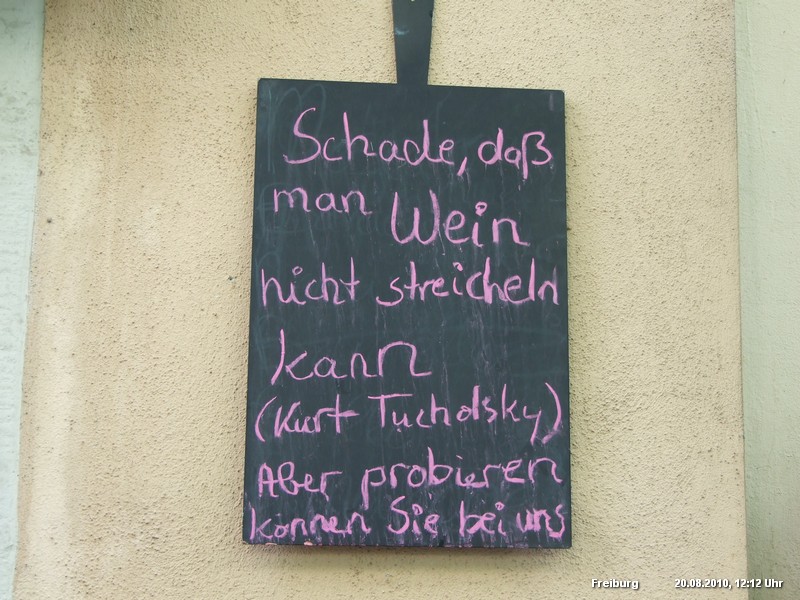 Schade, daß
man Wein
nicht streicheln
kann
(Kurt Tucholsky)
Aber probieren
können Sie bei uns
Freiburg 20.08.2010, 12:12 Uhr